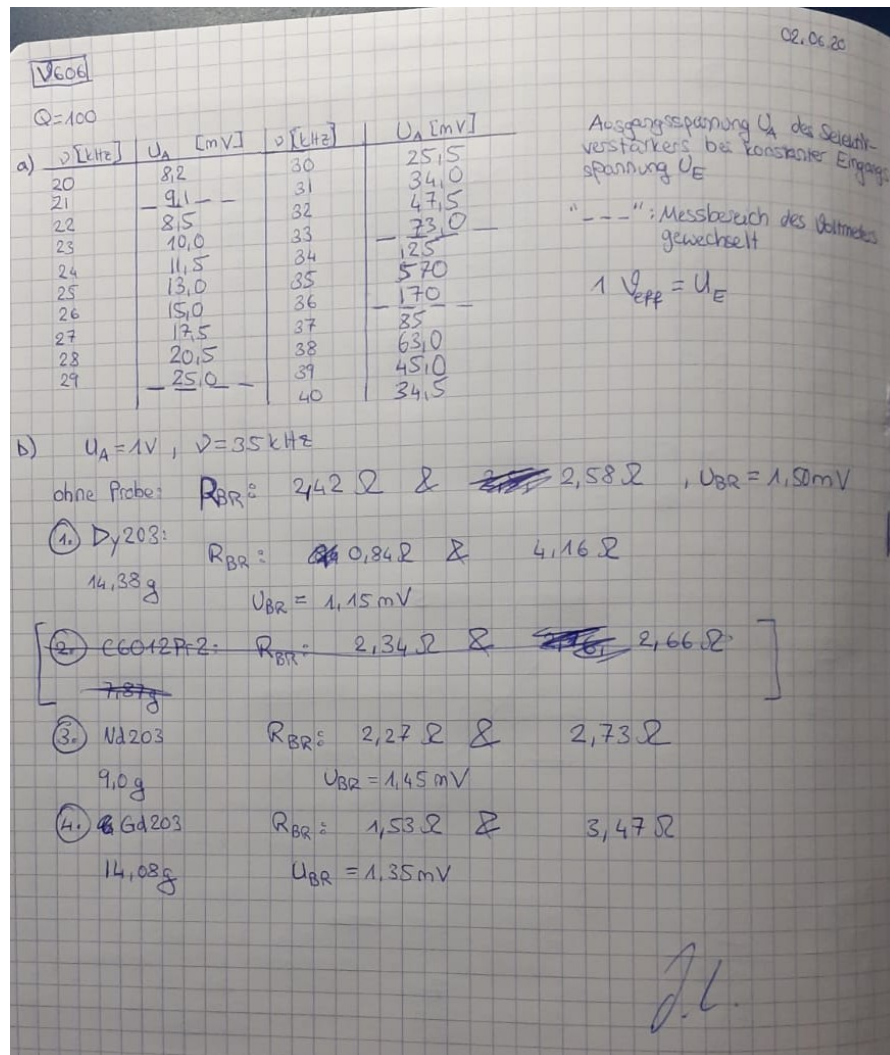 02.06.20
V606
Q=100
a) ν [kHz] | U_A [mV] | ν [kHz] | U_A [mV]
20 | 8,2 | 30 | 25,5
21 | _ 9,1 _ _ | 31 | 34,0
22 | 8,5 | 32 | 47,5
23 | 10,0 | 33 | _ 73,0 _
24 | 11,5 | 34 | 125
25 | 13,0 | 35 | 570
26 | 15,0 | 36 | _ 170 _ _
27 | 17,5 | 37 | 85
28 | 20,5 | 38 | 63,0
29 | _ 25,0 _ _ | 39 | 45,0
40 | 34,5
Ausgangsspannung U_A des Selektiv-
verstärkers bei konstanter Eingangs
spannung U_E
"_ _ _": Messbereich des Voltmeters
gewechselt
1 V_eff = U_E
b) U_A = 1V , ν = 35 kHz
ohne Probe: R_BR: 2,42 Ω & 2,58 Ω , U_BR = 1,50mV
1. Dy203:
R_BR: 0,84 Ω & 4,16 Ω
14,38g
U_BR = 1,15 mV
[2. C6012Pr2: R_BR: 2,34 Ω & 2,66 Ω]
7,87g
3. Nd203 R_BR: 2,27 Ω & 2,73 Ω
9,0g U_BR = 1,45 mV
4. Gd203 R_BR: 1,53 Ω & 3,47 Ω
14,08g U_BR = 1,35 mV